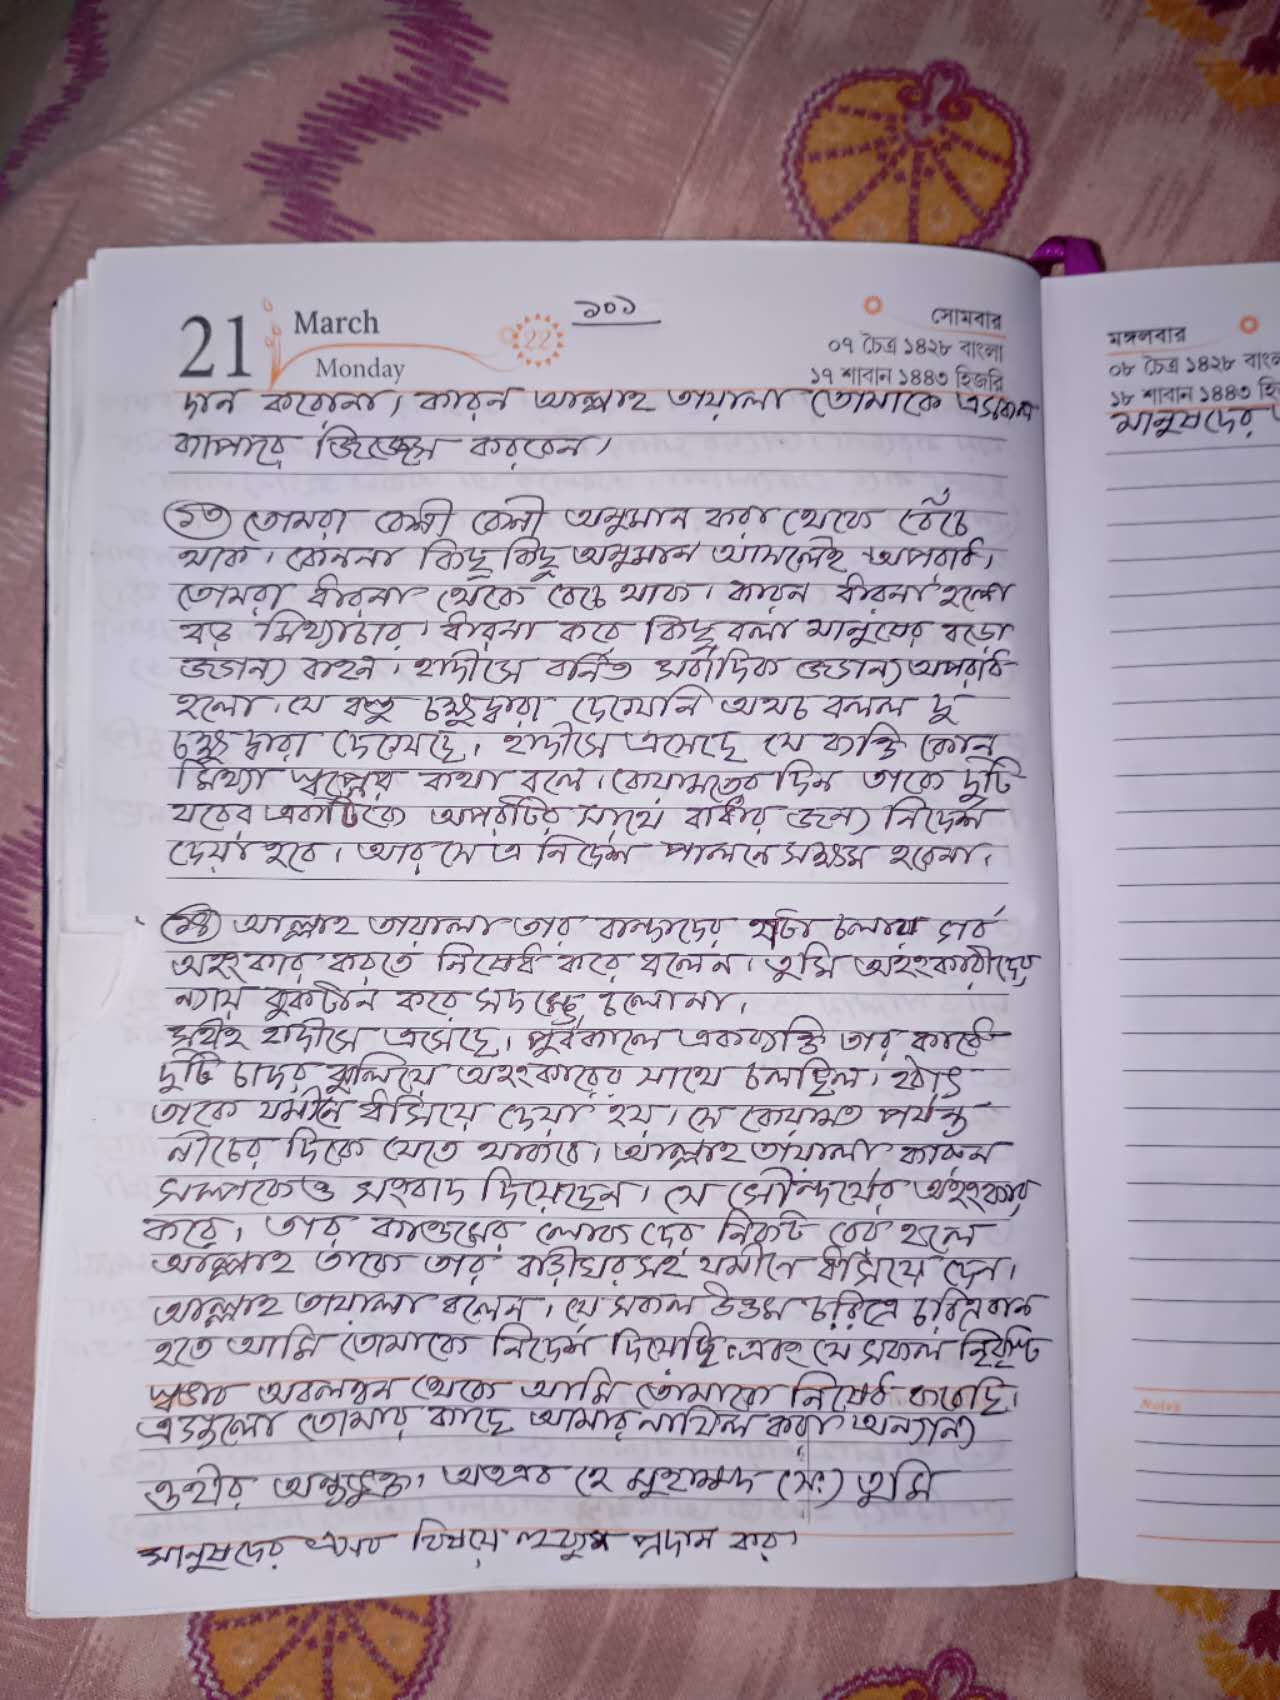 21
March
Monday
22
১০১
সোমবার
০৭ চৈত্র ১৪২৮ বাংলা
১৭ শাবান ১৪৪৩ হিজরি
দান করোনা, কারন আল্লাহ তায়ালা তোমাকে এসকল
ব্যাপারে জিজ্ঞেস করবেন।
১৩ তোমরা বেশী বেশী অনুমান করা থেকে বেঁচে
থাক। কেননা কিছু কিছু অনুমান আসলেই অপরাধ।
তোমরা ধারনা থেকে বেচে থাক। কারন ধারনা হলো
বড় মিথ্যাচার। ধারনা করে কিছু বলা মানুষের বড়ো
জঘন্য বাহন। হাদীসে বর্নিত সর্বাদিক জঘন্য অপরাধ
হলো। যে বস্তু চক্ষুদ্বারা দেখেনি অথচ বলল দু
চক্ষু দ্বারা দেখেছে। হাদীসে এসেছে যে ব্যক্তি কোন
মিথ্যা স্বপ্নের কথা বলে। কেয়ামতের দিন তাকে দুটি
যবের একটিকে অপরটির সাথে বাধার জন্য নির্দেশ
দেয়া হবে। আর সে এ নির্দেশ পালনে সক্ষম হবেনা।
১৪ আল্লাহ তায়ালা তার বান্দাদের হাটা চলায় গর্ব
অহংকার করতে নিষেধ করে বলেন। তুমি অহংকারীদের
ন্যায় বুকটান করে সদম্ভে চলোনা।
সহীহ হাদীসে এসেছে। পূর্বকালে একব্যক্তি তার কাধে
দুটি চাদর ঝুলিয়ে অহংকারের সাথে চলছিল। হঠাৎ
তাকে যমীনে ধসিয়ে দেয়া হয়। সে কেয়ামত পর্যন্ত
নীচের দিকে যেতে থাকবে। আল্লাহ তায়ালা কারুন
সম্পর্কেও সংবাদ দিয়েছেন। সে সৌন্দর্যের অহংকার
করে। তার কাওমের লোক দের নিকট বের হলে
আল্লাহ তাকে তার বাড়ীঘর সহ যমীনে ধসিয়ে দেন।
আল্লাহ তায়ালা বলেন। যে সকল উত্তম চরিত্রে চরিত্রবান
হতে আমি তোমাকে নির্দেশ দিয়েছি এবং যে সকল নিকৃষ্ট
স্বভাব অবলম্বন থেকে আমি তোমাকে নিষেধ করেছি।
এগুলো তোমার কাছে আমার নাযিল করা অন্যান্য
ওহীর অন্তর্ভুক্ত। অতএব হে মুহাম্মদ (সঃ) তুমি
মানুষদের এসব বিষয়ে হুকুম প্রদান কর।
মঙ্গলবার
০৮ চৈত্র ১৪২৮ বাংলা
১৮ শাবান ১৪৪৩ হি
মানুষদের
Notes